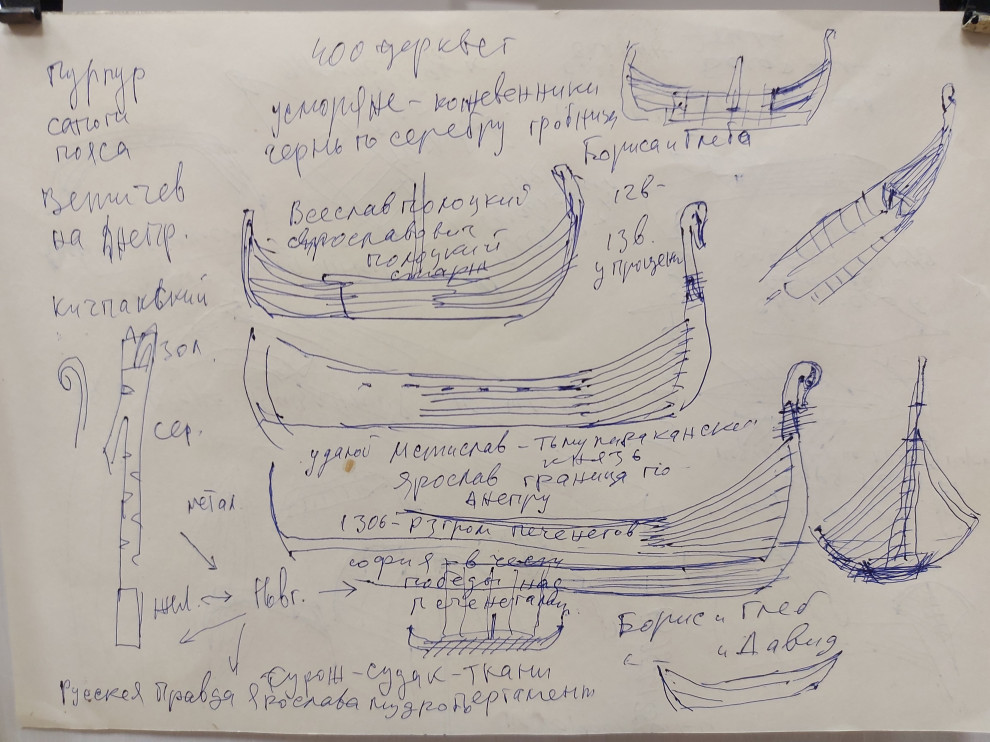 400 церквей
Пурпур
сапоги
пояса
усморяне - кожевенники
чернь по серебру гробница
Бориса и Глеба
Витичев
на Днепр.
Всеслав Полоцкий
полоцкий
12в -
13в.
Кичпакский
зол.
сер.
метал.
жел. → Новг. →
удалой Мстислав - Тьмутараканский
князь
Ярослав граница по
Днепру
1306 - Рзгром печенегов
София - в честь
победы над
печенегами
Борис и Глеб
и Давид
Сурож - Судак - ткани
Русская Правда Ярослава Мудро пергамент